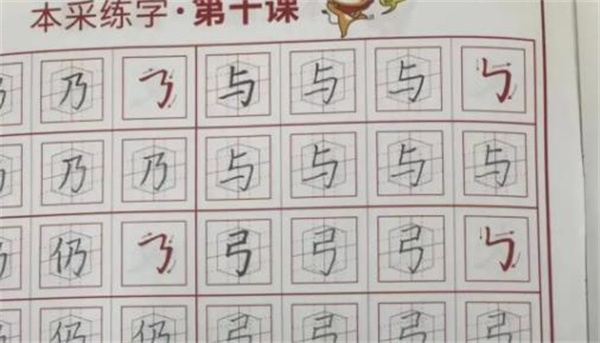 本采练字·第十课
乃 乃 ㇋ 与 与 与 ㇉
乃 乃 乃 与 与 与 与
仍 仍 ㇋ 弓 弓 弓 ㇉
仍 仍 弓 弓 弓 弓